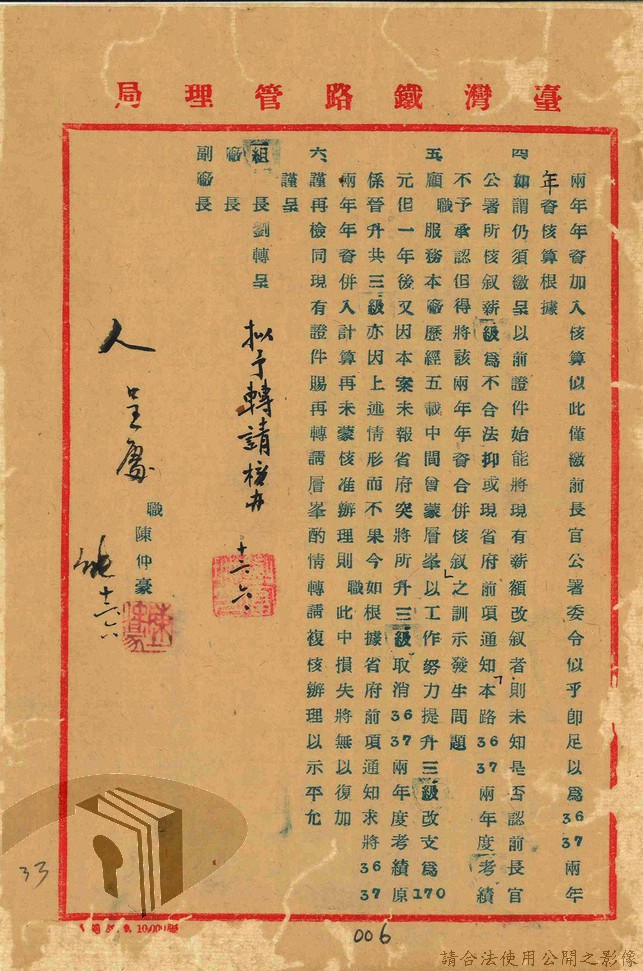 臺灣鐵路管理局
兩年年資加入核算似此僅繳前長官公署委令似乎卽足以爲3637兩年
年資核算根據
四如謂仍須繳呈以前證件始能將現有薪額改叙者則未知是否認前長官
公署所核叙薪級爲不合法抑或現省府前項通知「本路3637兩年度考績
不予承認但得將該兩年年資合併核叙」之訓示發生問題
五顧職服務本廠歷經五載中間曾蒙層峯以工作努力提升三級改支爲170
元但一年後又因本案未報省府突將所升三級取消3637兩年度考績原
係晉升共三級亦因上述情形而不果今如根據省府前項通知求將3637
兩年年資併入計算再未蒙核准辦理則職此中損失將無以復加
六謹再檢同現有證件賜再轉請層峯酌情轉請複核辦理以示平允
謹呈
組長劉轉呈
廠長
副廠長
擬予轉請核辦
十六
職陳仲豪
十六
33
006
10,000
請合法使用公開之影像